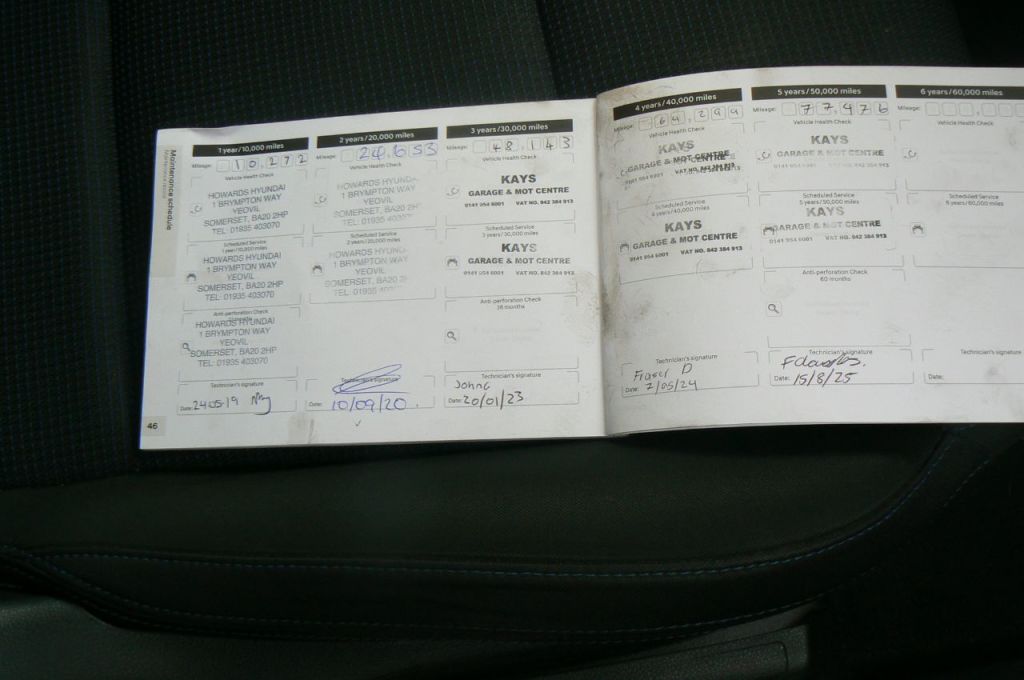 Maintenance schedule
Maintenance record
1 year/10,000 miles
Mileage: 10,272
Vehicle Health Check
HOWARDS HYUNDAI
1 BRYMPTON WAY
YEOVIL
SOMERSET, BA20 2HP
TEL: 01935 403070
Scheduled Service
1 year/10,000 miles
HOWARDS HYUNDAI
1 BRYMPTON WAY
YEOVIL
SOMERSET, BA20 2HP
TEL: 01935 403070
Anti-perforation Check
HOWARDS HYUNDAI
1 BRYMPTON WAY
YEOVIL
SOMERSET, BA20 2HP
TEL: 01935 403070
Technician's signature
Date: 24.05.19
46
2 years/20,000 miles
Mileage: 24,653
Vehicle Health Check
HOWARDS HYUNDAI
1 BRYMPTON WAY
YEOVIL
SOMERSET, BA20 2H
TEL: 01935
Scheduled Service
2 years/20,000 miles
HOWARDS HYUND
1 BRYMPTON WAY
YEOVIL
SOMERSET, BA20 2
TEL: 01935 40
Technician's signature
Date: 10/09/20.
3 years/30,000 miles
Mileage: 48,143
Vehicle Health Check
KAYS
GARAGE & MOT CENTRE
0141 954 6001 VAT NO. 842 384 913
Scheduled Service
3 years/30,000 miles
KAYS
GARAGE & MOT CENTRE
0141 954 6001 VAT NO. 842 384 913
Anti-perforation Check
36 months
Technician's signature
Date: 20/01/23
4 years/40,000 miles
Mileage: 64,299
Vehicle Health Check
KAYS
GARAGE & MOT CENTRE
0141 954 6001 VAT NO. 842 384 913
Scheduled Service
4 years/40,000 miles
KAYS
GARAGE & MOT CENTRE
0141 954 6001 VAT NO. 842 384 913
Technician's signature
Fraser D
Date: 2/05/24
5 years/50,000 miles
Mileage: 77,476
Vehicle Health Check
KAYS
GARAGE & MOT CENTRE
0141 954 6001 VAT NO. 842 384 913
Scheduled Service
5 years/50,000 miles
KAYS
GARAGE & MOT CENTRE
0141 954 6001 VAT NO. 842 384 913
Anti-perforation Check
60 months
Technician's signature
Date: 15/8/25
6 years/60,000 miles
Mileage:
Vehicle Health Check
Scheduled Service
6 years/60,000 miles
Technician's
Date: